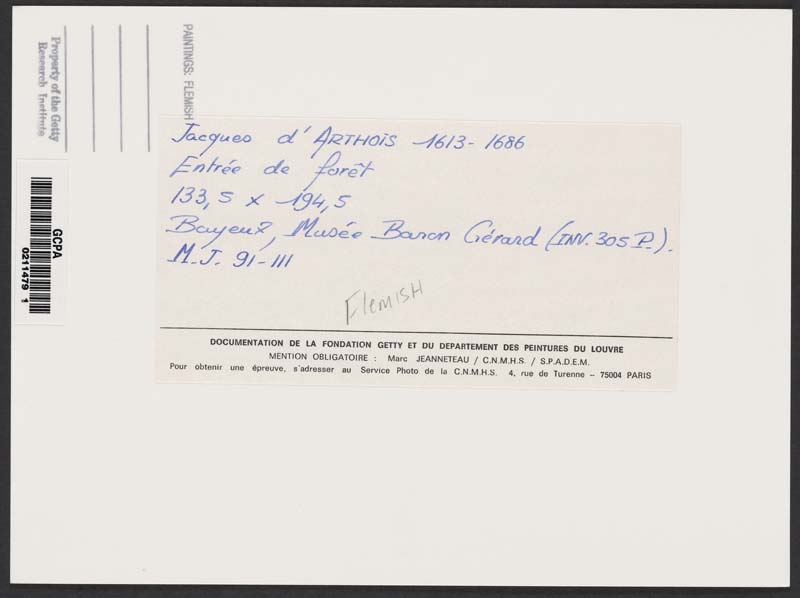 Property of the Getty
Research Institute
PAINTINGS: FLEMISH
GCPA
0211479 1
Jacques d'ARTHOIS 1613-1686
Entrée de forêt
133,5 x 194,5
Bayeux, Musée Baron Gérard (INV. 305 P.).
M.J. 91-111
FlemisH
DOCUMENTATION DE LA FONDATION GETTY ET DU DEPARTEMENT DES PEINTURES DU LOUVRE
MENTION OBLIGATOIRE : Marc JEANNETEAU / C.N.M.H.S. / S.P.A.D.E.M.
Pour obtenir une épreuve, s'adresser au Service Photo de la C.N.M.H.S. 4, rue de Turenne – 75004 PARIS